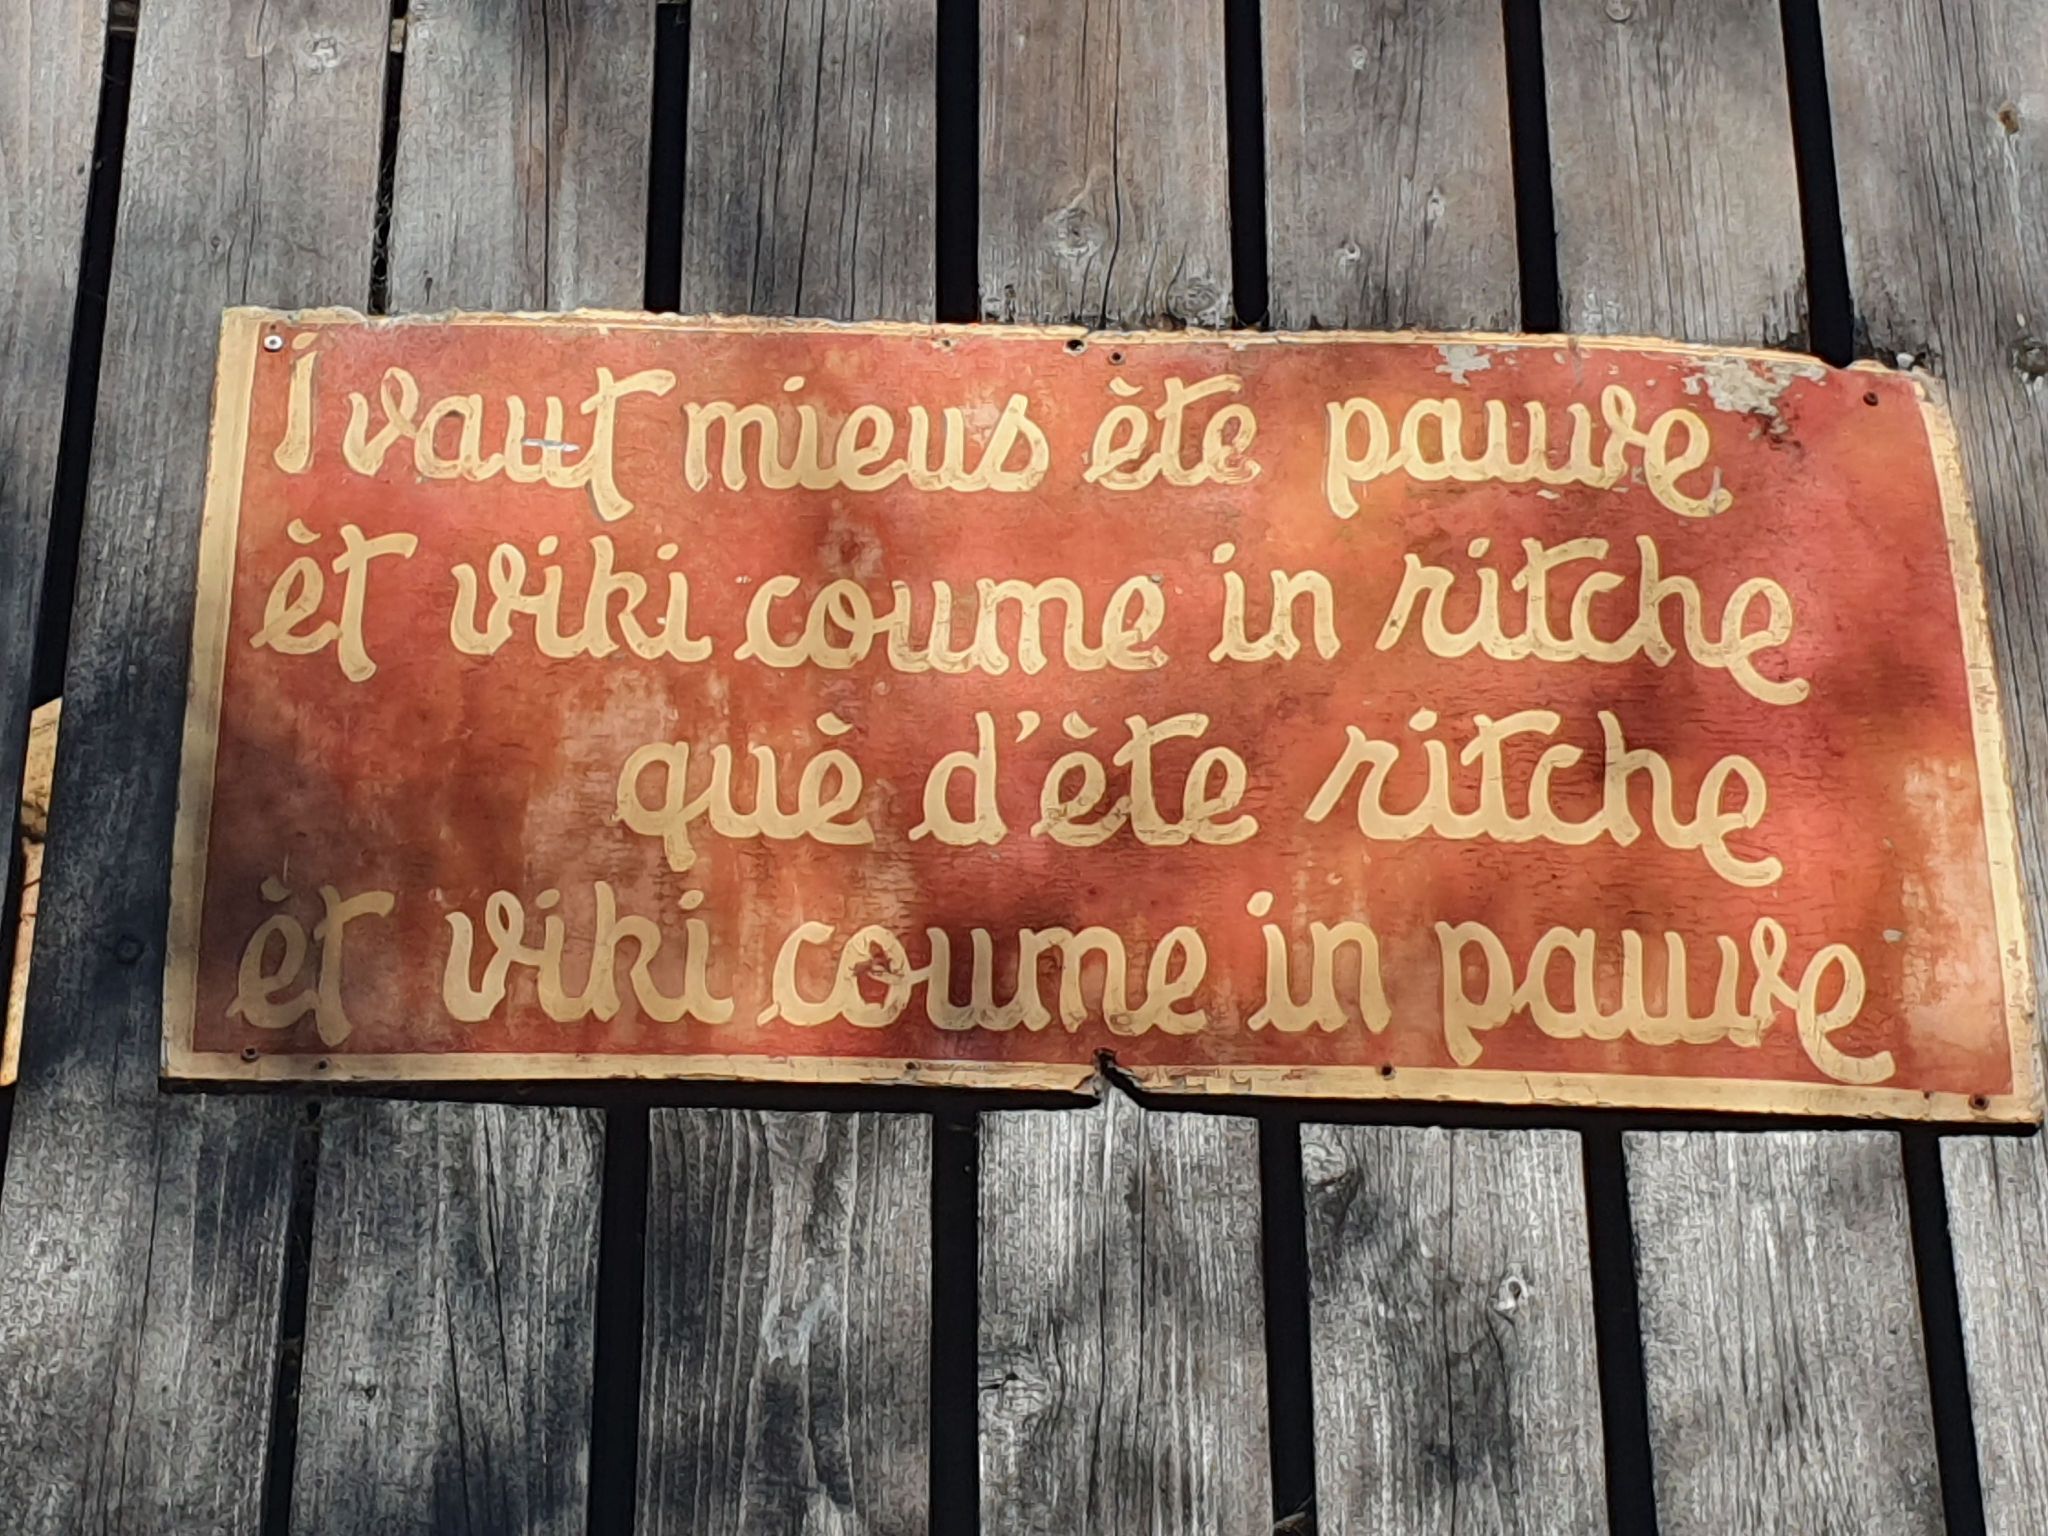 i vaut mieus ète pauve
èt viki coume in ritche
què d'ète ritche
èt viki coume in pauve